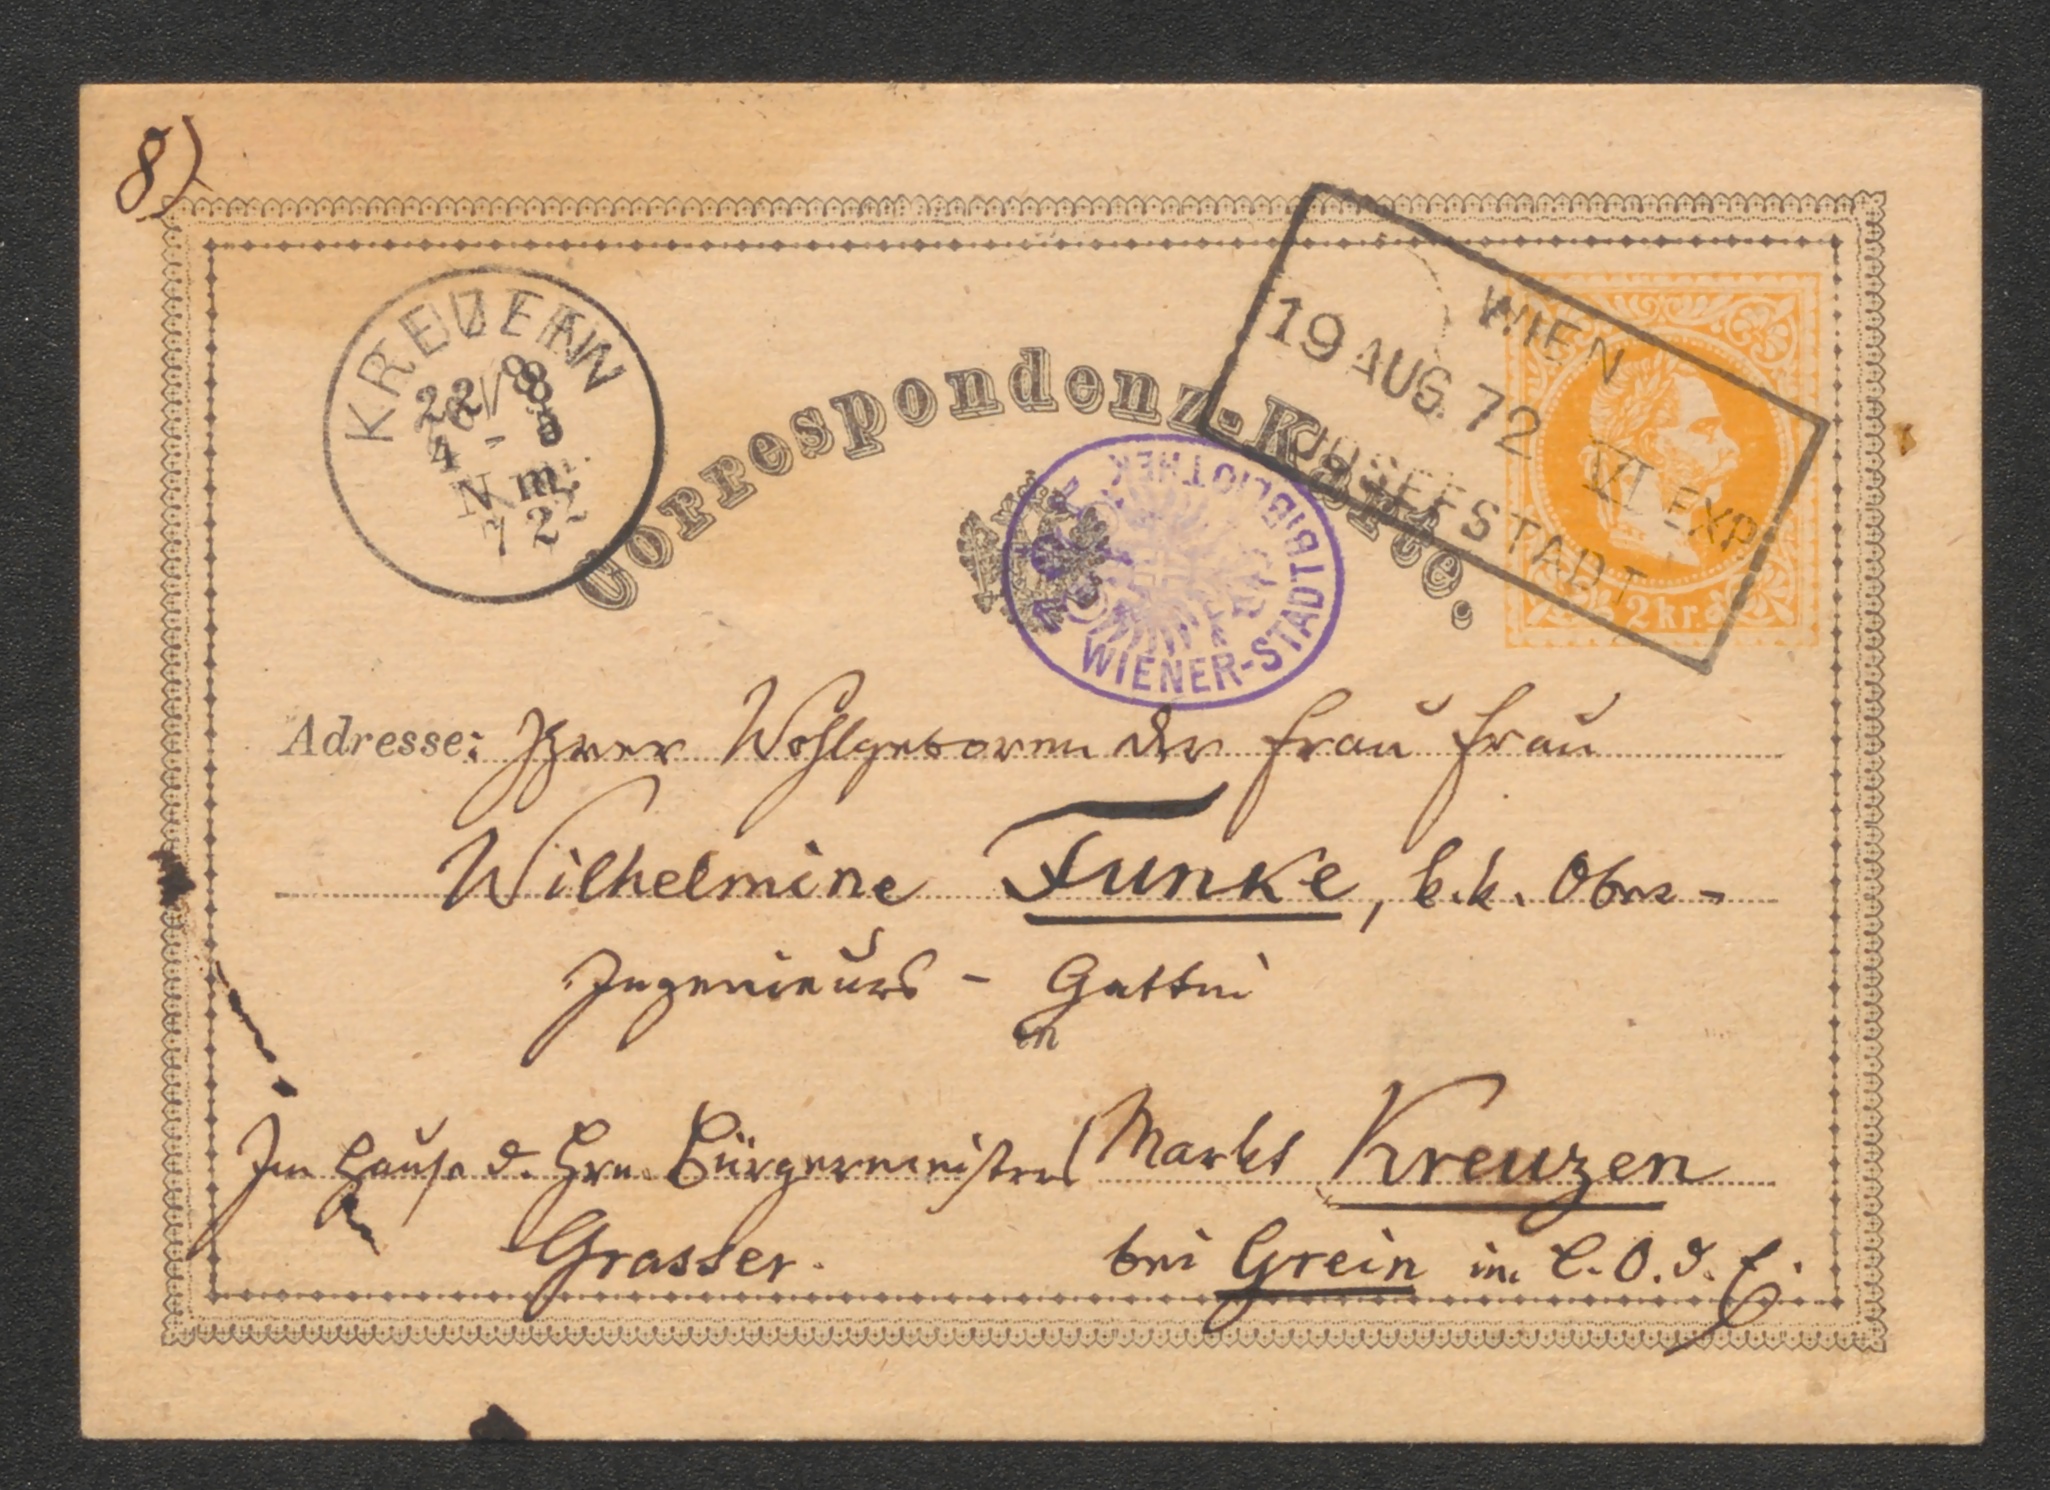 8)
KREUZEN
22/8
4 - 5
N. m.
72
Correspondenz-Karte.
WIEN
19 AUG. 72 VI EXP.
JOSEFSTADT
2 kr.
WIENER-STADTBIBLIOTHEK
Adresse: Ihrer Wohlgeboren der Frau Frau
Wilhelmine Funke, k.k. Ober-
Ingenieurs - Gattin
in
Im Hause d. Hrn. Bürgermeisters Markt Kreuzen
Grasser. bei Grein im L. O. d. E.